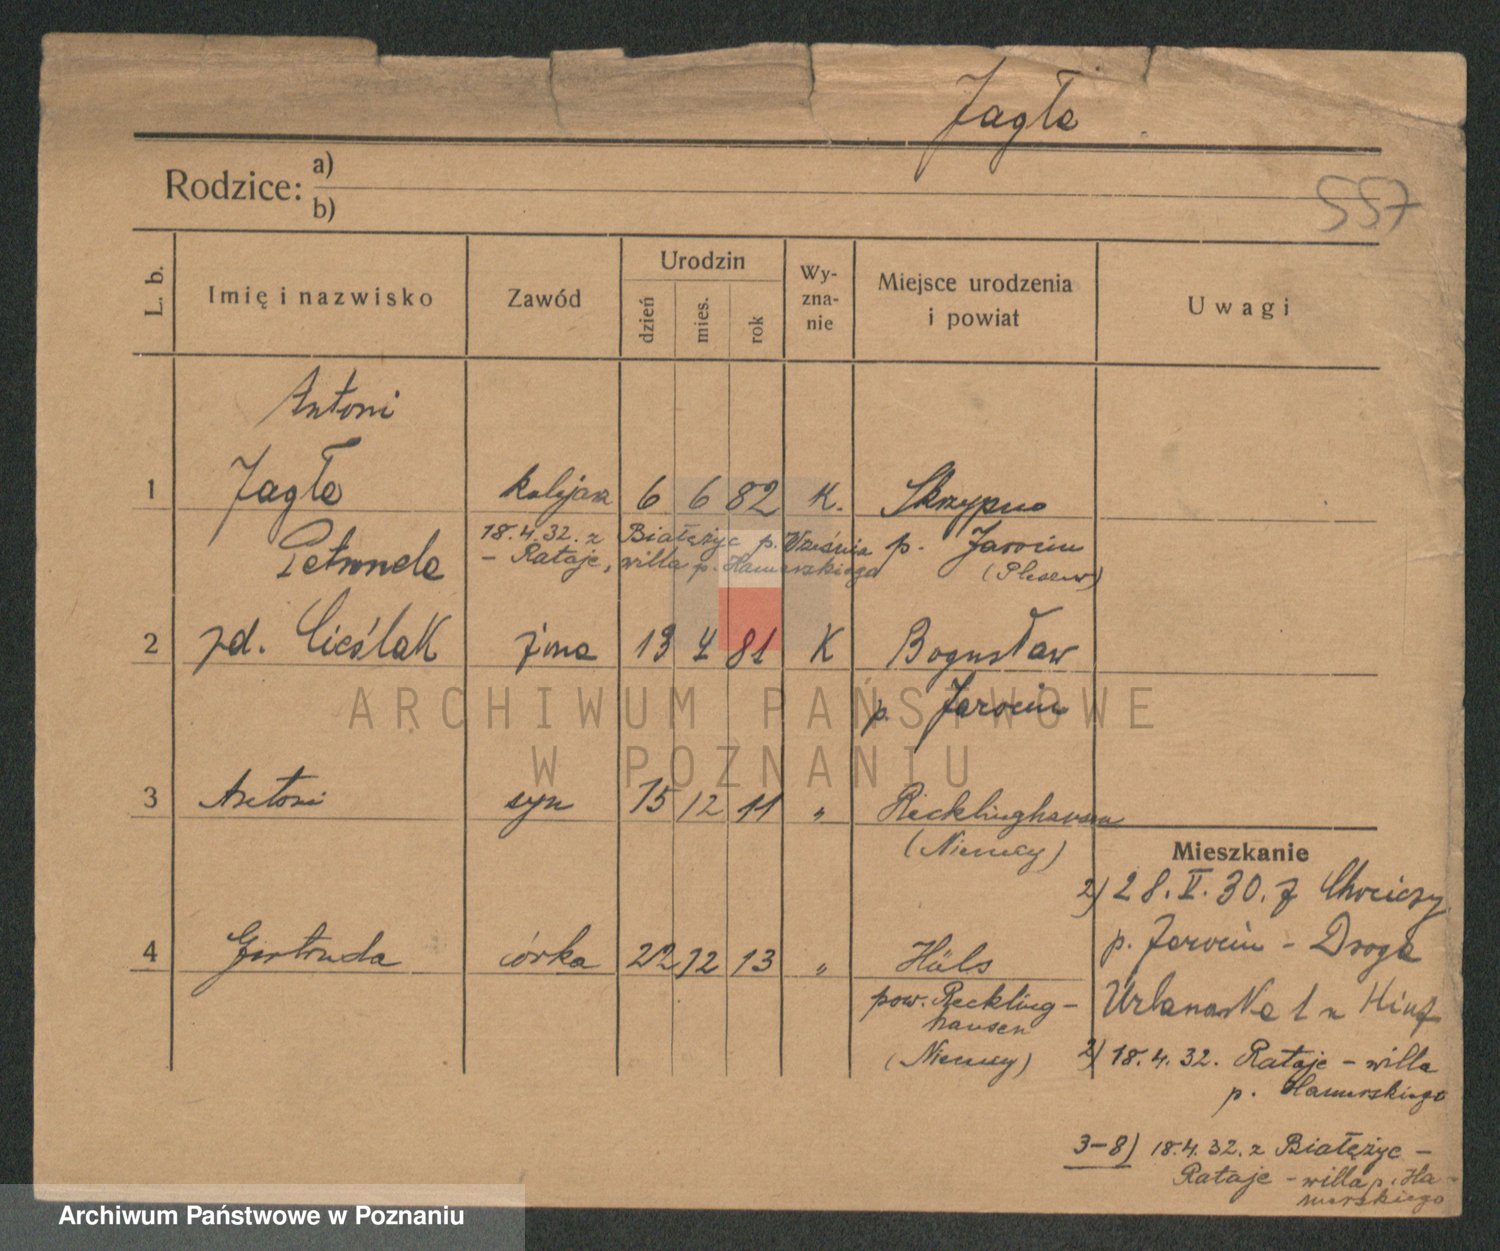 Jagła
557
Rodzice: a)
b)
L. b. Imię i nazwisko Zawód Urodzin dzień mies. rok Wy-zna-nie Miejsce urodzenia i powiat Uwagi
Antoni
1 Jagła kolejarz 6 6 82 K. Skrzypno
18.4.32. z Białężyc p. Września p. Jarocin
- Rataje, willa p. Hamerskiego (Pleszew)
Petronela
2 zd. Cieślak żona 13 4 81 K Bogusław
p. Jarocin
3 Antoni syn 15 12 11 " Recklinghausen
(Niemcy)
Mieszkanie
2) 28.V.30. z Chociczy
p. Jarocin - Droga
Urbanowska 1 u
4 Gertruda córka 22 12 13 " Hüls
pow. Reckling-
hausen
(Niemcy)
2) 18.4.32. Rataje - willa
p. Hamerskiego
3-8) 18.4.32. z Białężyc -
Rataje - willa p. Ha-
merskiego
ARCHIWUM PAŃSTWOWE
W POZNANIU
Archiwum Państwowe w Poznaniu